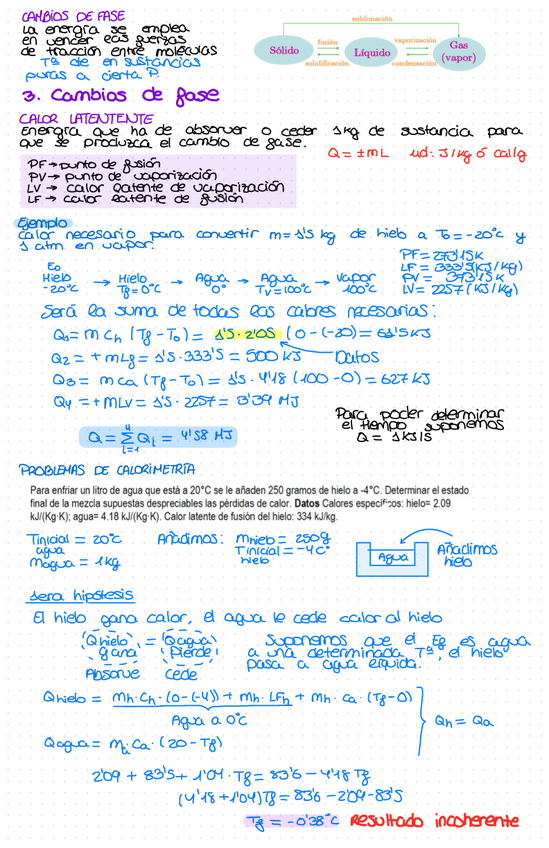 CAMBIOS DE FASE
La energía se emplea
en vencer las fuerzas
de tracción entre moléculas
Tª de en sustancias
puras a cierta P.
sublimación
Sólido
fusión
solidificación
Líquido
vaporización
condensación
Gas
(vapor)
3. Cambios de fase
CALOR LATENTENTE
Energía que ha de absorver o ceder 1kg de sustancia para
que se produzca el cambio de fase.
Q = ±mL ud: J/kg ó cal/g
PF → punto de fusión
PV → punto de vaporización
LV → calor latente de vaporización
LF → calor latente de fusión
Ejemplo
calor necesario para convertir m = 1'5 kg de hielo a T₀ = -20°C y
1 atm en vapor.
PF = 273'15K
LF = 333'5(KJ/Kg)
PV = 373'15K
LV = 2257 (KJ/Kg)
E₀
Hielo → Hielo → Agua → Agua → Vapor
-20°C Tf = 0°C 0° Tv = 100°C 100°C
Será la suma de todas las calores necesarias:
Q₁ = m Ch (Tf - T₀) = 1'5 · 2'05 (0 - (-20)) = 61'5 KJ
Q2 = + mLf = 1'5 · 333'5 = 500 KJ
Datos
Q3 = m ca (Tf - T₀) = 1'5 · 4'18 (100 - 0) = 627 KJ
Q4 = + mLV = 1'5 · 2257 = 3'39 MJ
Para poder determinar
el tiempo suponemos
Q = 1KJ/S
Q = Σ Qi = 4'58 MJ
4
i=1
PROBLEMAS DE CALORIMETRÍA
Para enfriar un litro de agua que está a 20°C se le añaden 250 gramos de hielo a -4°C. Determinar el estado
final de la mezcla supuestas despreciables las pérdidas de calor. Datos Calores específicos: hielo= 2.09
kJ/(Kg·K); agua= 4.18 kJ/(Kg·K). Calor latente de fusión del hielo: 334 kJ/kg.
Tinicial = 20°C
agua
magua = 1kg
Añadimos: mhielo = 250g
Tinicial = -4C°
hielo
Agua
Añadimos
hielo
1era hipótesis
El hielo gana calor, el agua le cede calor al hielo
Qhielo = Qagua
gana Pierde
Absorve cede
Suponemos que el Ef es agua
a una determinada Tª, el hielo
pasa a agua líquida.
Qhielo = mh · Ch · (0 - (-4)) + mh · LFh + mh · Ca · (Tf - 0)
Agua a 0°C
Qh = Qa
Qagua = m · Ca · (20 - Tf)
2'09 + 83'5 + 1'04 · Tf = 83'6 - 4'18 Tf
(4'18 + 1'04) Tf = 83'6 - 2'09 - 83'5
Tf = -0'38°C Resultado incoherente